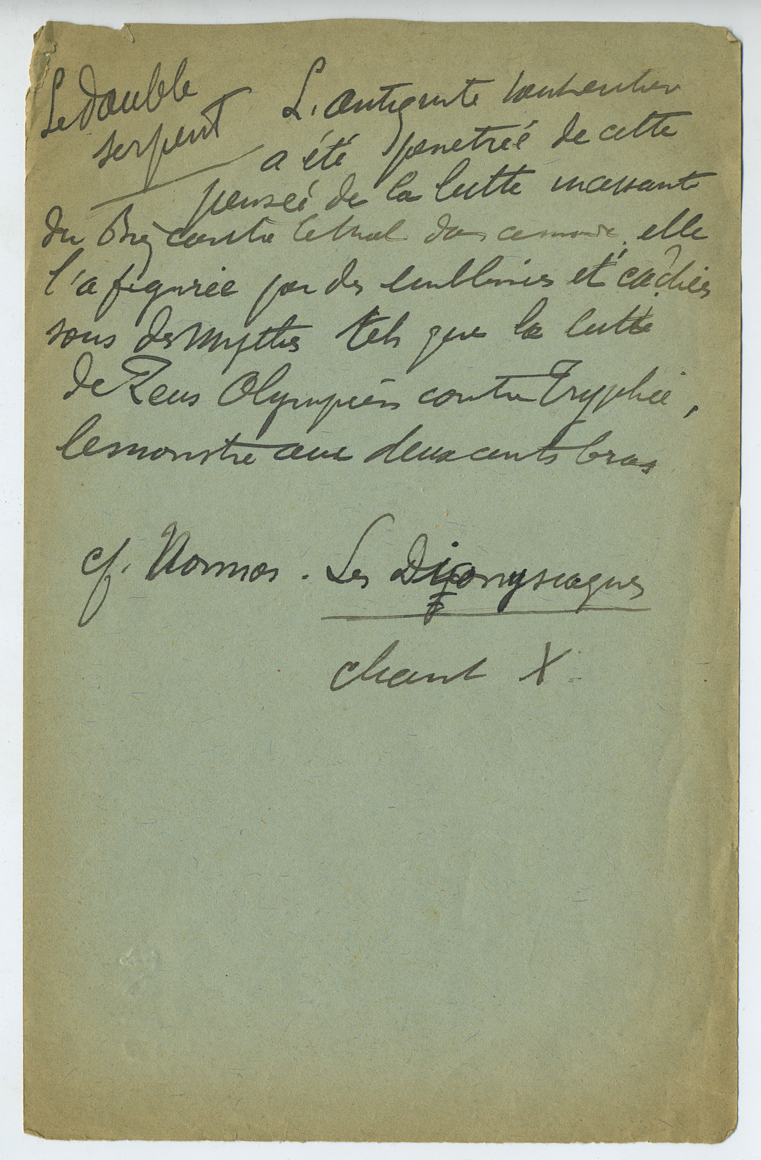 Le double
serpent
L'antiquité tout entière
a été penetrée de cette
pensée de la lutte incessante
du Bien contre le Mal dans ce monde, elle
l'a figurée par des emblèmes et cachés
sous des mythes tels que la lutte
de Zeus Olympien contre Tryphée,
le monstre aux deux cents bras
cf. Nonnos. Les Dionysiaques
chant X